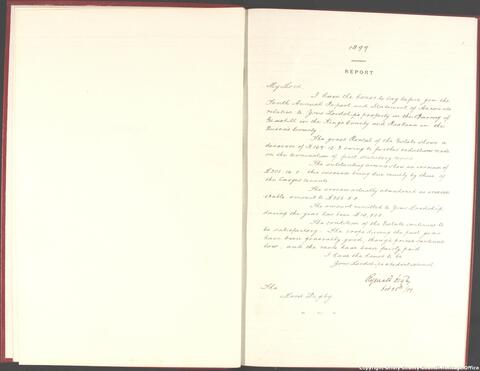 1899
REPORT
My Lord,
I have the honor to lay before you the
Annual Report and Statement of Accounts
relative to Your Lordship's property in the Barony of
Geashill in the King's County and in the
Queen's County
The gross Rental of the Estate shows a
decrease of £169.12.3 owing to further reductions made
on the termination of first statutory
The outstanding arrears show an increase of
this increase being due mainly by three of
the larger tenants
The arrears actually abandoned as
amount to
The amount remitted to Your Lordship
during the year has been
The condition of the Estate continues to
be satisfactory. The crops during the past year
have been generally good, though prices
low, and the rents have been fairly paid
I have the honor to be
Your Lordship's obedient servant
Reginald Digby
The
Lord Digby
Copyright Offaly County Council Heritage Office